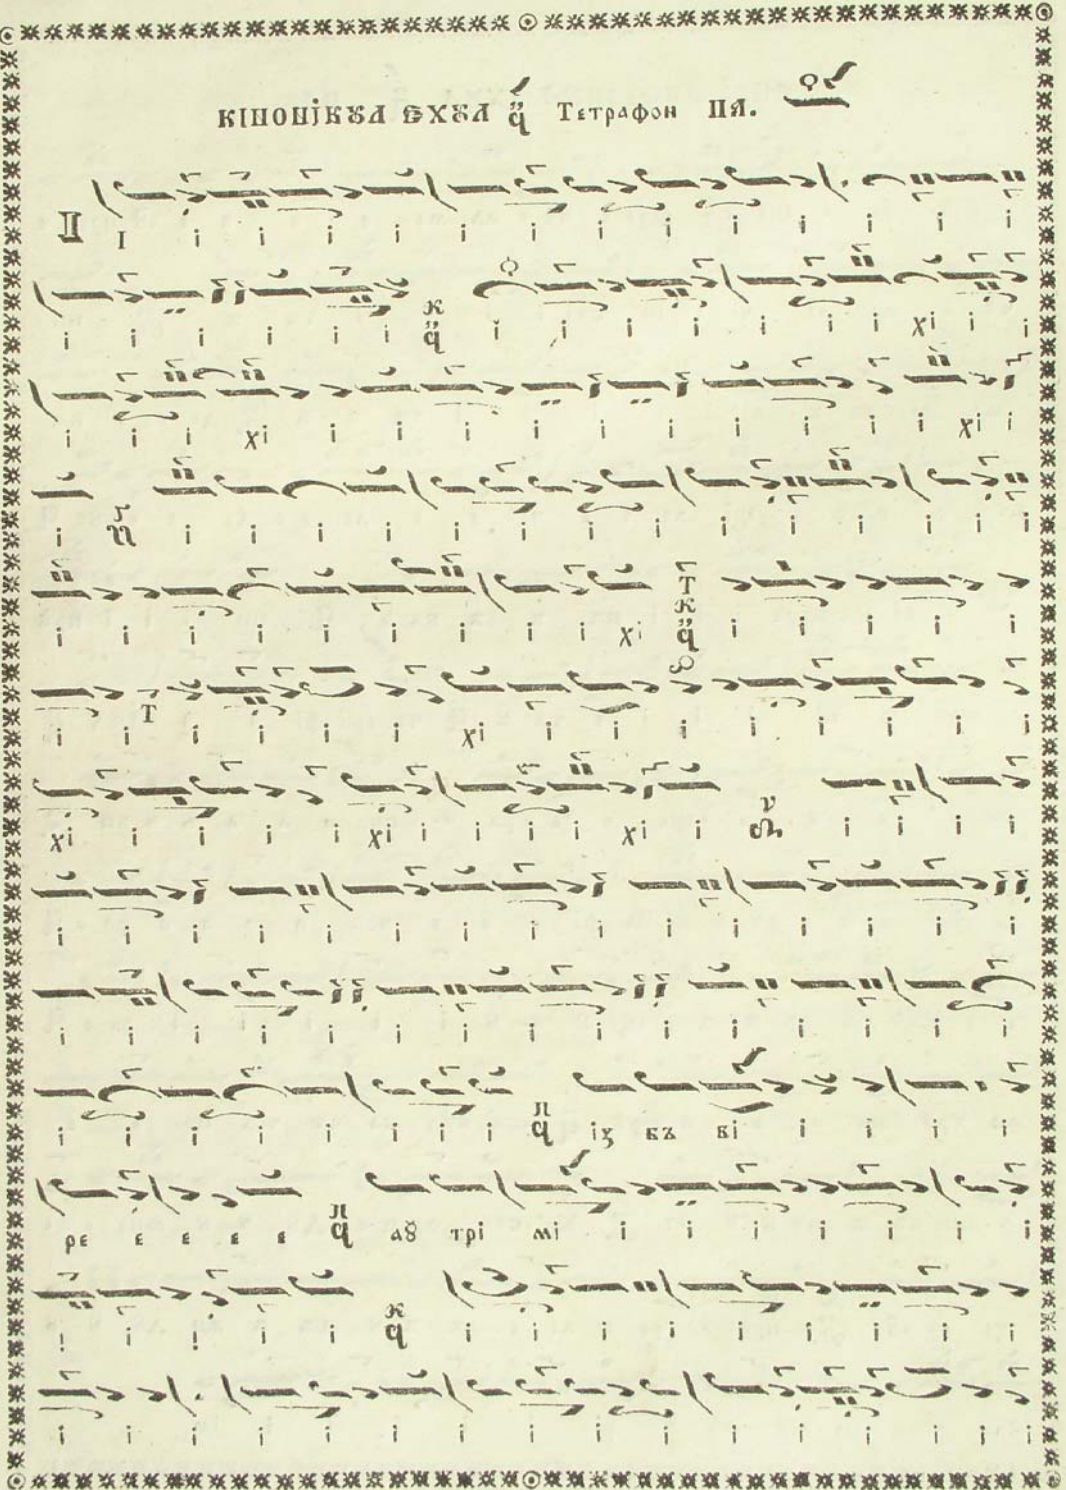 КІНОНІКꙊЛ ЄХꙊЛ ҁ̈ Тетрафон ПЛ.
Д І і і і і і і і і і і і і і
і і і і і і к ҁ̈ і і і і і і і хі і і
і і і хі і і і і і і і і і і хі і
і і і і і і і і і і і і і і і
і і і і і і і і і хі к ҁ̈ і і і і і
і і і і і і хі і і і і і і і і
хі і і і і хі і і і і хі і і і і і
і і і і і і і і і і і і і і і
і і і і і і і і і і і і і і і
і і і і і і і і п ҁ із бъ ві і і і і
ре е е е е п ҁ аꙋ трі мі і і і і і і і
і і і і і к ҁ̈ і і і і і і і і і
і і і і і і і і і і і і і і і і